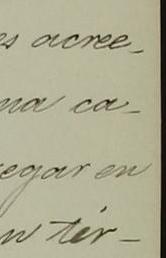 es acree-
ma ca-
egar en
n tér-